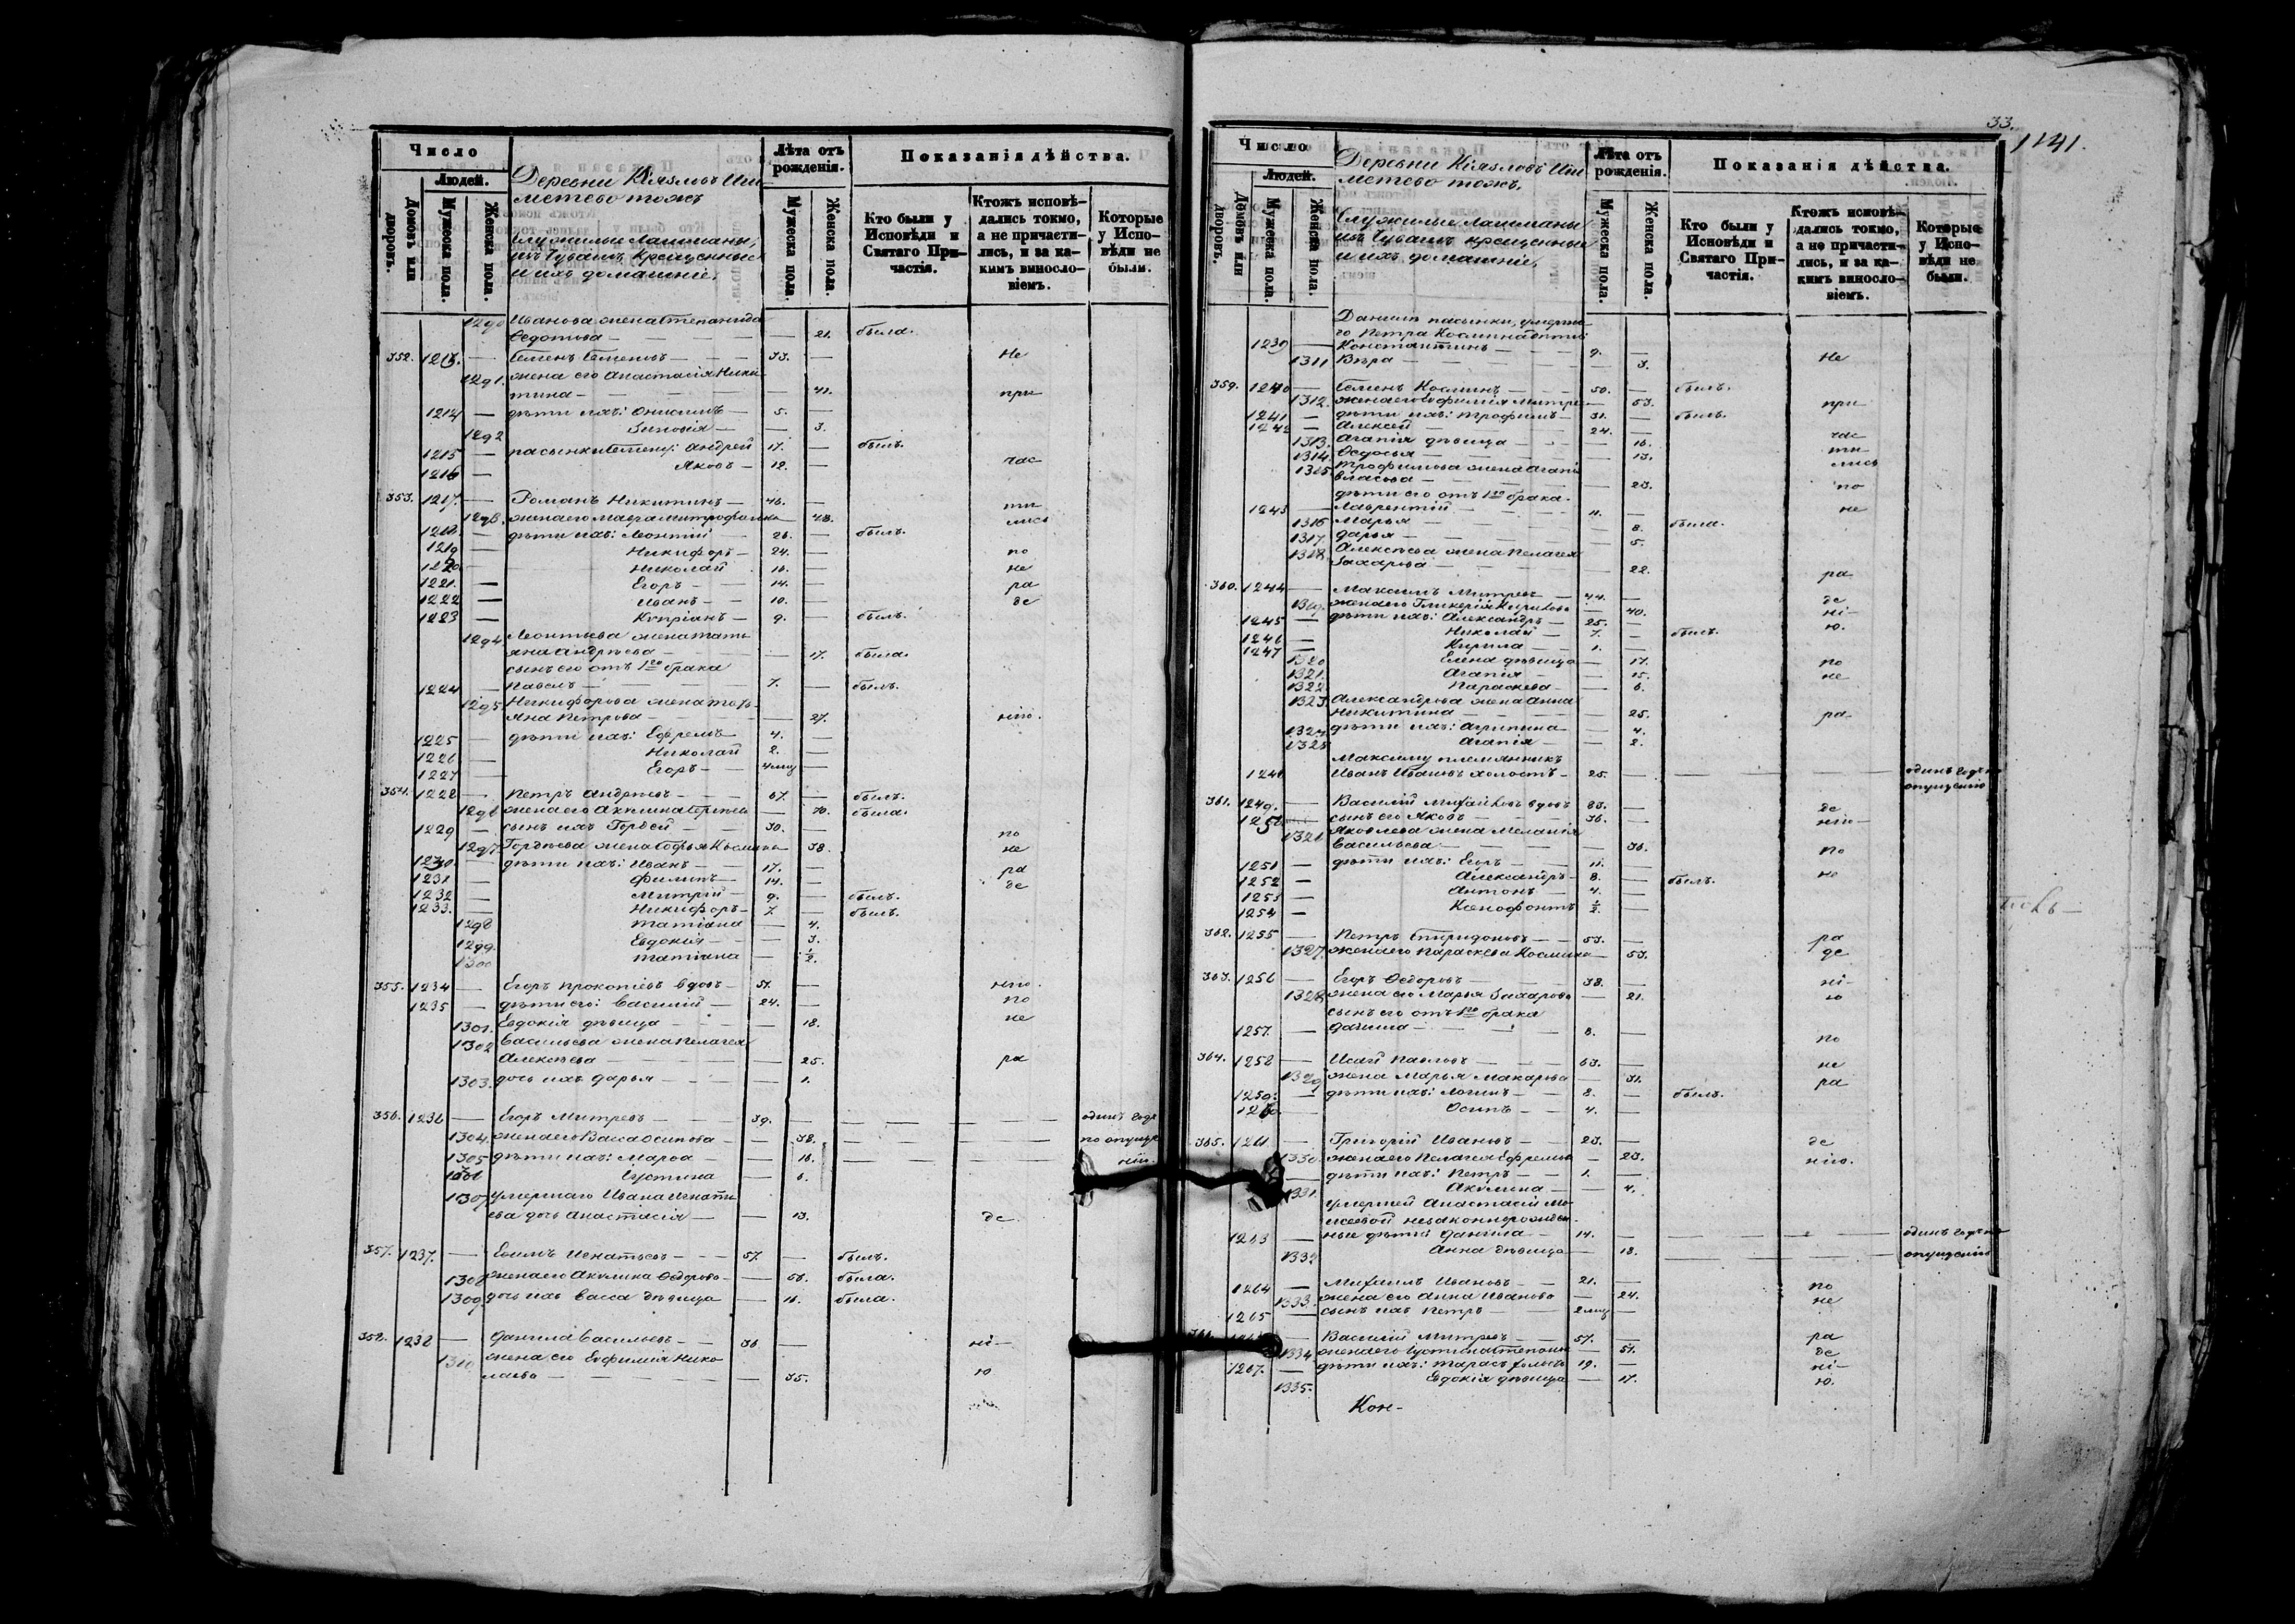 Число
Людей.
Домовъ или дворовъ.
Мужеска пола.
Женска пола.
Деревни Кіязловъ Иш
метево тожъ
Служилые Лашманы,
изъ Чувашъ крещенные
и ихъ домашніе,
Лѣта отъ рожденія.
Мужеска пола.
Женска пола.
Показанія дѣйства.
Кто были у Исповѣди и Святаго Причастія.
Ктожъ исповѣдались токмо, а не причастились, и за какимъ винословіемъ.
Которые у Исповѣди не были.
1290 Иванова жена Степанида
Ѳедотова — 21. была.
352. 1213. — Семенъ Семеновъ — 33. — Не
1291. жена его Анастасія Ники
тина — 41. при
1214 — дѣти ихъ: Онисимъ — 5. —
1292 Зиновія — 3.
1215 — пасынки Семену: Андрей 17. — былъ.
1216 — Яковъ — 12. — час
353. 1217. — Романъ Никитинъ — 46. — ти
1293. жена его Мавра Митрофанова — 48. лись
1218. — дѣти ихъ: Леонтій — 26. — былъ.
1219 — Никифоръ — 24. — по
1220 — Николай 16. — не
1221. — Егоръ — 14. — ра
1222 — Иванъ — 10. — де
1223 — Купріанъ — 9. — былъ.
1294 Леонтьева жена Тать
яна Андреева — 17. была.
сынъ его отъ 1го брака
1224 — Павелъ — 7. — былъ.
1295. Никифорова жена Тать
яна Петрова — 27. нію.
1225 — дѣти ихъ: Ефремъ 4. —
1226 — Николай 2. —
1227 — Егоръ — 4 мц —
354. 1228 — Петръ Андреевъ — 67. — былъ.
1296 жена его Акулина Сергѣева — 70. была.
1229 — сынъ ихъ Гордей — 30. — по
1297 Гордѣева жена Софья Косьмина — 38. не
1230. — дѣти ихъ: Иванъ — 17. — ра
1231 — Филипъ — 14. — де
1232 — Митрій — 9. — былъ.
1233. — Никифоръ — 7. — былъ.
1298 Татіана — 4.
1299. Евдокія — 3.
1300 Татіана — ½.
355. 1234 — Егоръ Прокопіевъ вдовъ — 51. — нію.
1235 — дѣти его: Василій — 24. — по
1301. Евдокія дѣвица — 18. не
1302 Васильева жена Пелагея
Алексѣева — 25. ра
1303. дочь ихъ Дарья — 1.
356. 1236 — Егоръ Митревъ — 39. — одинъ годъ
1304. жена его Васса Осипова — 38. — по опуще
1305 дѣти ихъ: Марѳа — 16. — нію.
1306 Іустина — 6.
1307. умершаго Ивана Игнать
ева дочь Анастасія — 13. де
357. 1237. — Евимъ Игнатьевъ — 57. — былъ.
1308 жена его Акулина Ѳедорова — 56. была.
1309. дочь ихъ Васса дѣвица — 16. была.
358. 1238 — Данила Васильевъ — 36 — ні—
1310 жена его Евфимія Нико
лаева — 35. ю
33.
1141.
Число
Людей.
Домовъ или дворовъ.
Мужеска пола.
Женска пола.
Деревни Кіязловъ Иш
метево тожъ,
Служилые Лашманы
изъ Чувашъ крещенные
и ихъ домашніе,
Лѣта отъ рожденія.
Мужеска пола.
Женска пола.
Показанія дѣйства.
Кто были у Исповѣди и Святаго Причастія.
Ктожъ исповѣдались токмо, а не причастились, и за какимъ винословіемъ.
Которые у Исповѣди не были.
Данилѣ пасынки, умерша
го Петра Косьмина дѣти:
1239 — Константинъ — 9. — Не
1311 Вѣра — 3.
359. 1240 — Семенъ Косминъ — 50. — былъ.
1312. жена его Евфимія Митрева — 53. при
1241 — дѣти ихъ: Трофимъ — 31. — былъ.
1242 — Алексей — 24. — час
1313. Агапія дѣвица — 16. ти
1314. Ѳедосья — 13. лись
1315 Трофимова жена Агапія
Власова — 23. по
дѣти его отъ 1го брака.
1243 — Лаврентій — 11. не
1316 Марья — 8. была.
1317. Дарья — 5.
1318. Алексѣева жена Пелагея
Захарова — 22. ра
360. 1244 — Максимъ Митревъ — 44. — де
1319. жена его Гликерія Кирилова — 40. ні—
1245 — дѣти ихъ: Александръ — 25. — ю.
1246 — Николай — 7. — былъ.
1247 — Кирила — 1. —
1320 Елена дѣвица — 17. по
1321. Агапія — 15. не
1322 Параскева — 6.
1323. Александрова жена Анна
Никитина — 25. ра
1324 дѣти ихъ: Агрипина — 4.
1325 Агапія — 2.
Максиму племянникъ
1248 Иванъ Ивановъ холостъ — 25. — одинъ годъ по
опущенію
361. 1249. — Василій Михайловъ вдовъ 83. — де
1250 — сынъ его Яковъ — 36. — нію—
1326 Яковлева жена Меланія
Васильева — 36. по
1251 — дѣти ихъ: Егоръ — 11. —
1252 — Александръ — 8. — былъ. не
1253 — Антонъ — 4. —
1254 — Ксенофонтъ ½. —
362. 1255 — Петръ Спиридоновъ — 53. — ра
1327. жена его Параскева Космина — 53. де
363. 1256 — Егоръ Ѳедоровъ — 38. — ні—
1328. жена его Марья Захарова — 21. ю
сынъ его отъ 1го брака
1257. — Данила — 8. — по
364. 1258 — Исай Павловъ — 63. — не
1329 жена Марья Макарова — 31. ра
1259. — дѣти ихъ: Логинъ — 8. — былъ.
1260. Осипъ — 4. —
365. 1261 — Григорій Ивановъ — 23. — де
1330. жена его Пелагея Ефремова — 23. нію.
— дѣти ихъ: Петръ — 1. —
1331. Акулина — 4.
умершей Анастасіи Мо
исеевой незаконнорожден
1263 — ные дѣти: Данила — 14. — одинъ годъ по
1332 Анна дѣвица — 18. — опущенію
1264 — Михаилъ Ивановъ — 21. — по
1333. жена его Анна Иванова — 24. не
1265 — сынъ ихъ Петръ — 2 мц —
— Василій Митревъ — 57. — ра
1334 жена его Іустина Степанова — 51. де
1267. — дѣти ихъ: Тарасъ холостъ 19. — ні—
1335. Евдокія дѣвица — 17. ю.
Кон-